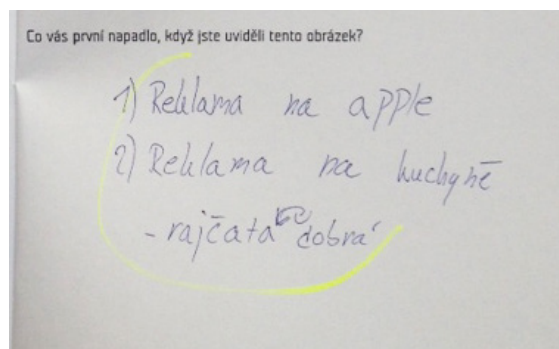 Co vás první napadlo, když jste uviděli tento obrázek?
1) Reklama na apple
2) Reklama na kuchyně
- rajčata dobrá